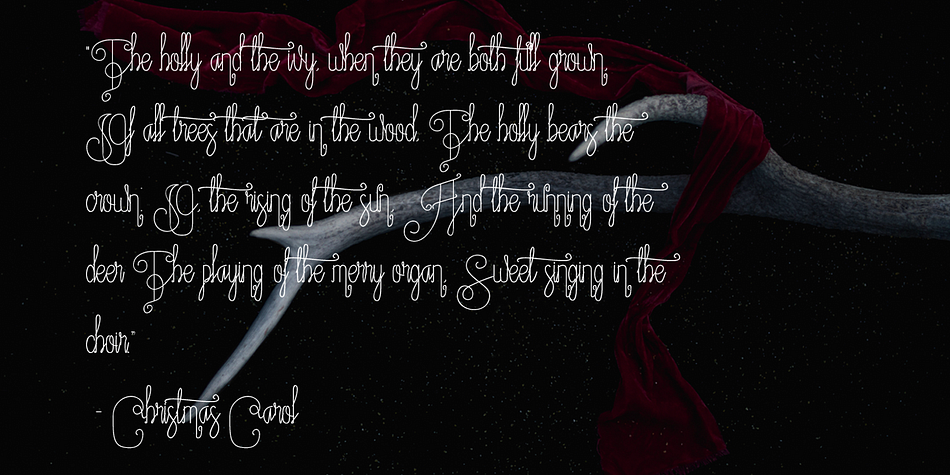 "The holly and the ivy, when they are both full grown,
Of all trees that are in the wood, The holly bears the
crown; O, the rising of the sun, And the running of the
deer The playing of the merry organ, Sweet singing in the
choir."
- Christmas Carol